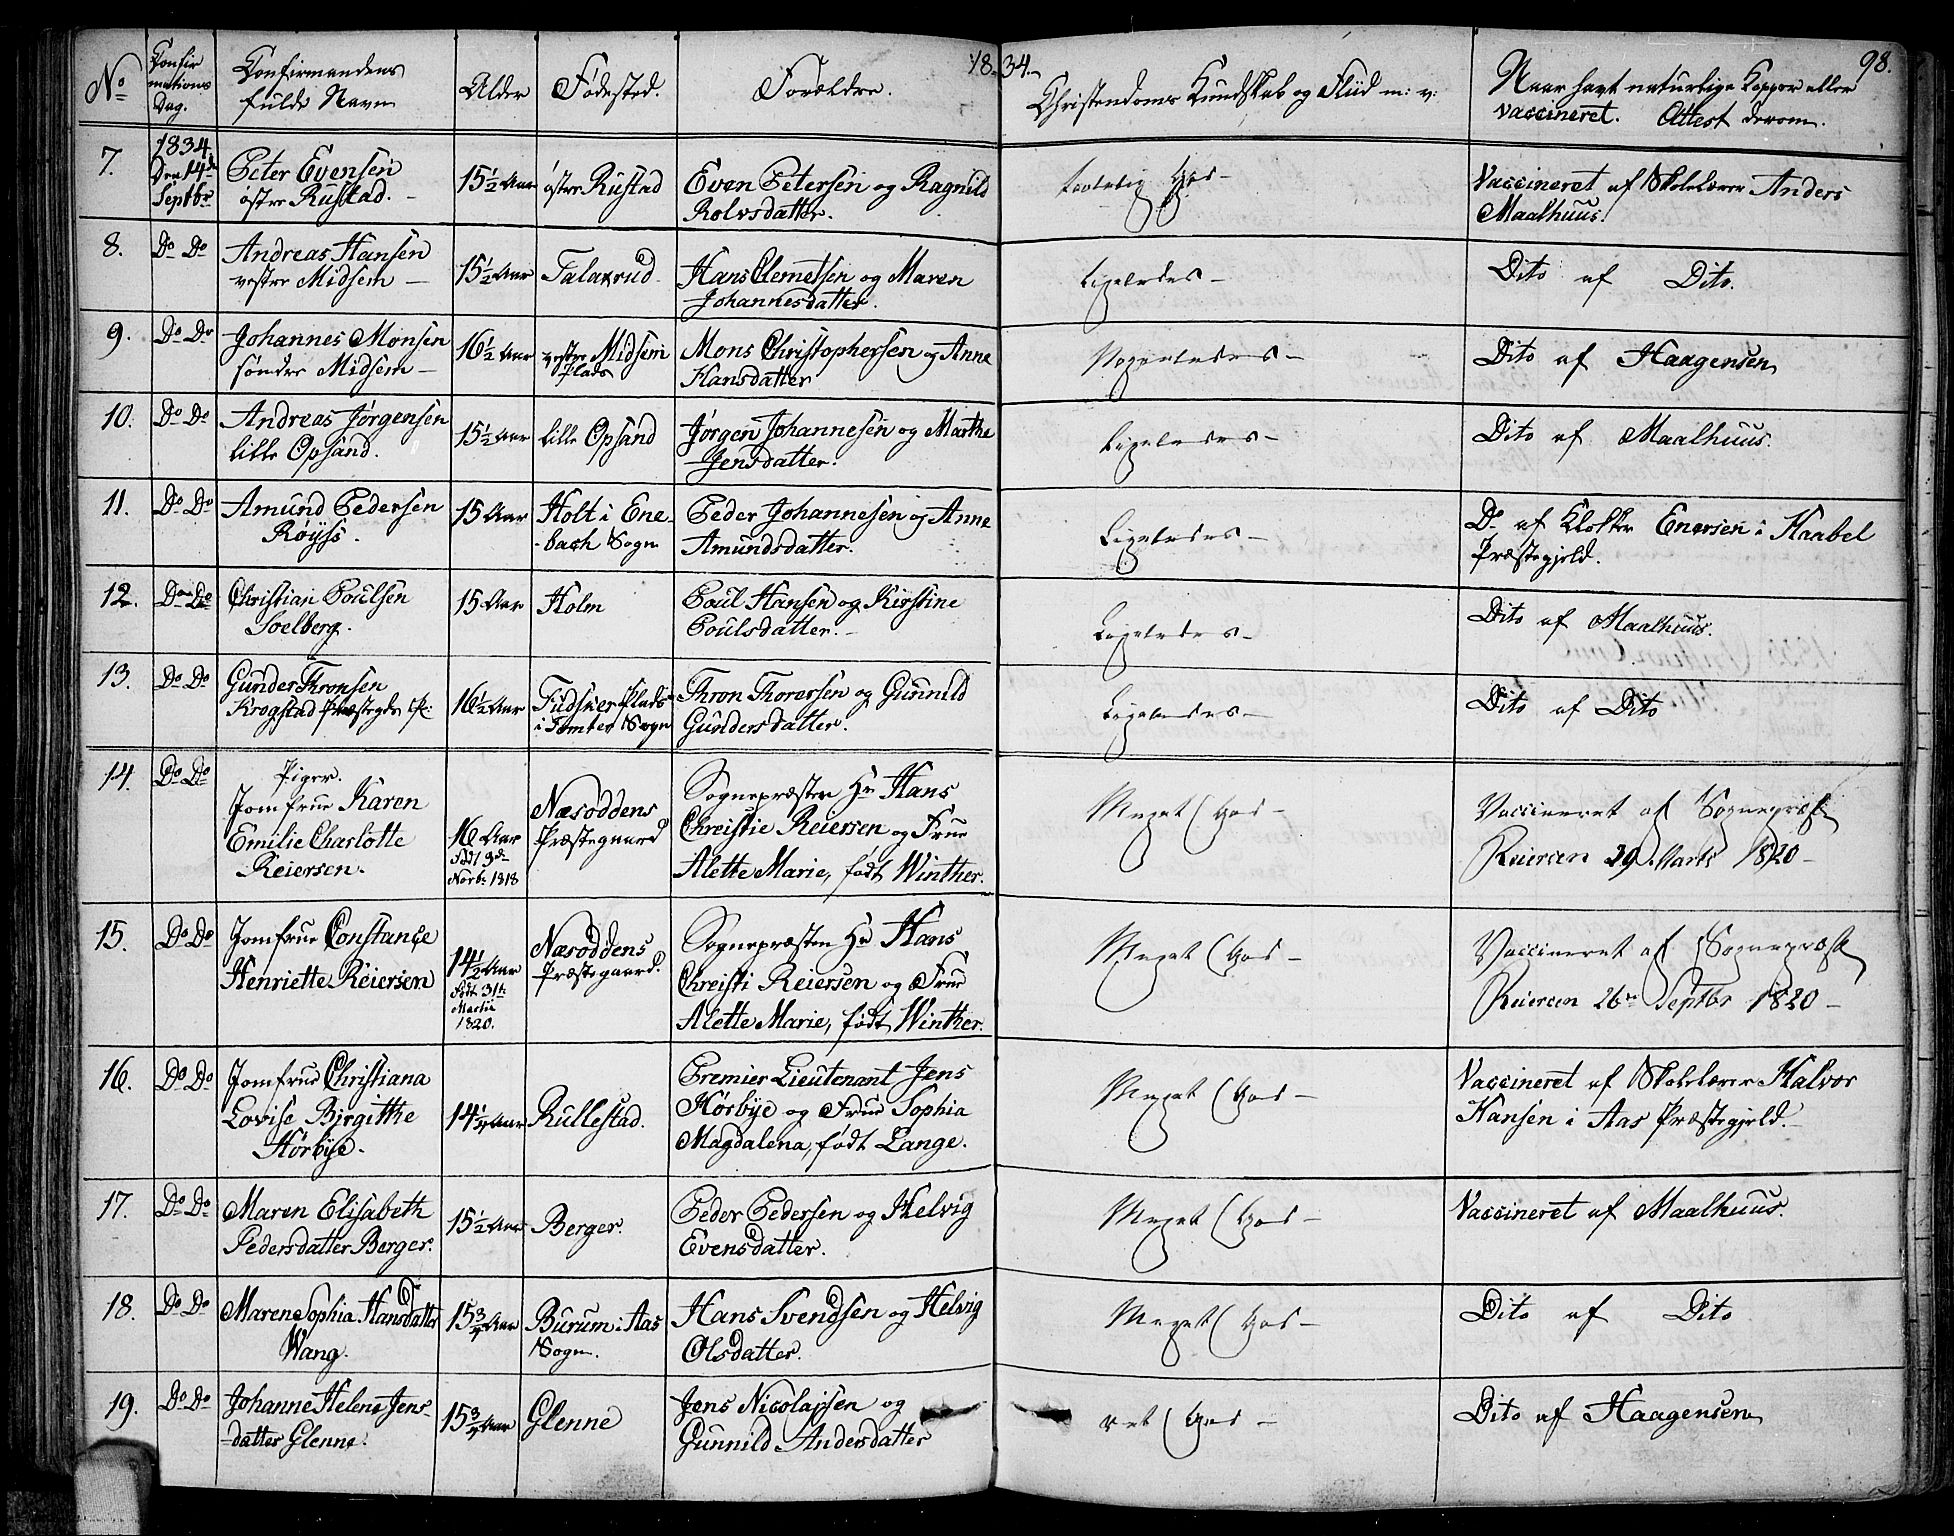 18 34.
98.
No
Confir
mations
Dag.
Confirmandens
fulde Navn
Alder
Fødested.
Forældre.
Christendoms Kundskab og Fliid m: v:
Naar havt naturlige Kopper eller
vaccineret. Attest derom.
7. 1834 Den 14de Septbr
Peter Evensen
østre Rustad.
15½ Aar
østre Rustad
Even Petersen og Ragnild
Rolvsdatter.
Temmelig God
Vaccineret af Skolelærer Anders
Maalhuus.
8. Do Do
Andreas Hansen
vestre Midsem
15½ Aar
Talaxrud
Hans Clemetsen og Maren
Johannesdatter.
Ligeledes
Dito af Dito.
9. Do Do
Johannes Monsen
søndre Midsem
16½ Aar
vestre Midsem
Plads
Mons Christophersen og Anne
Hansdatter
Dito af Haagensen
10. Do Do
Andreas Jørgensen
lille Opsand.
15½ Aar
lille Opsand
Jørgen Johannesen og Marthe
Jensdatter.
Ligeledes
Dito af Maalhuus.
11. Do Do
Amund Pedersen
Røyss.
15 Aar
Holt i Ene-
bach Sogn
Peder Johannesen og Anne
Amundsdatter.
Ligeledes
Do af Klokker Enersen i Haabel
Præstegjeld.
12. Do Do
Christian Poulsen
Soelberg.
15 Aar
Holm
Poul Hansen og Kirstine
Poulsdatter.
Ligeledes
Dito af Maalhuus.
13. Do Do
Gunder Thronsen
Krogstad
16½ Aar
Plads
i Tomter Sogn
Thron Thorersen og Gunnild
Gundersdatter.
Ligeledes
Dito af Dito
14. Do Do
Piger.
Jomfrue Karen
Emilie Charlotte
Reiersen.
16 Aar
Født 9de
Novbr 1818
Næsoddens
Præstegaard
Sognepræsten Hr Hans
Christie Reiersen og Frue
Alette Marie, født Winther.
Meget God
Vaccineret af Sognepræst
Reiersen 29 Marts 1820
15. Do Do
Jomfrue Constance
Henriette Reiersen
14½ Aar
Født 31te
Martii
1820.
Næsoddens
Præstegaard.
Sognepræsten Hr Hans
Christi Reiersen og Frue
Alette Marie, født Winther.
Meget God
Vaccineret af Sognepræst
Reiersen 26de Septbr 1820
16. Do Do
Jomfrue Christiana
Lovise Birgitthe
Hørbye.
14¼ Aar
Rullestad.
Premier Lieutenant Jens
Hørbye og Frue Sophia
Magdalena, født Lange.
Meget God
Vaccineret af Skolelærer Halvor
Hansen i Aas Præstegjeld.
17. Do Do
Maren Elisabeth
Pedersdatter Berger.
15½ Aar
Berger.
Peder Pedersen og Helvig
Evensdatter.
Meget God
Vaccineret af Maalhuus.
18. Do Do
Maren Sophia Hansdatter
Wang.
15¾ Aar
Burum i Aas
Sogn.
Hans Svendsen og Helvig
Olsdatter.
Meget God
Dito af Dito
19. Do Do
Johanne Helene Jens-
datter Glenne.
15¾ Aar
Glenne
Jens Nicolajsen og
Gunnild Andersdatter
God
Dito af Haagensen